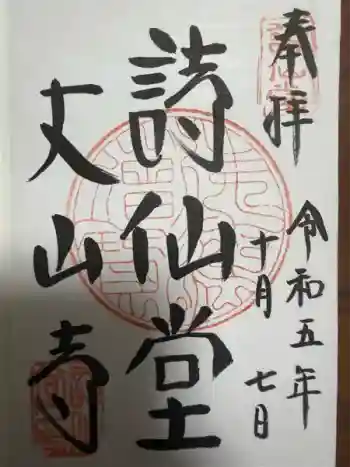 奉拝
令和五年
十月
七日
詩仙堂
丈山寺